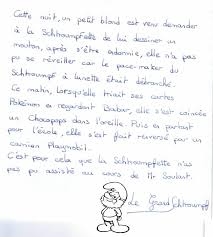 Cette nuit, un petit blond est venu demander
à la Schtroumpfette de lui dessiner un
mouton, après s'être endormie, elle n'a pas
pu se réveiller car le pace-maker du
Schtroumpf à lunette était débranché.
Ce matin, lorsqu'elle triait ses cartes
Pokémon en regardant Babar, elle s'est coincée
un Chocapops dans l'oreille. Puis en partant
pour l'école, elle s'est fait renversé par un
camion Playmobil.
C'est pour cela que la Schtroumpfette n'as
pas pu assisté au cours de Mr Soulant.
Le Grand Schtroumpf